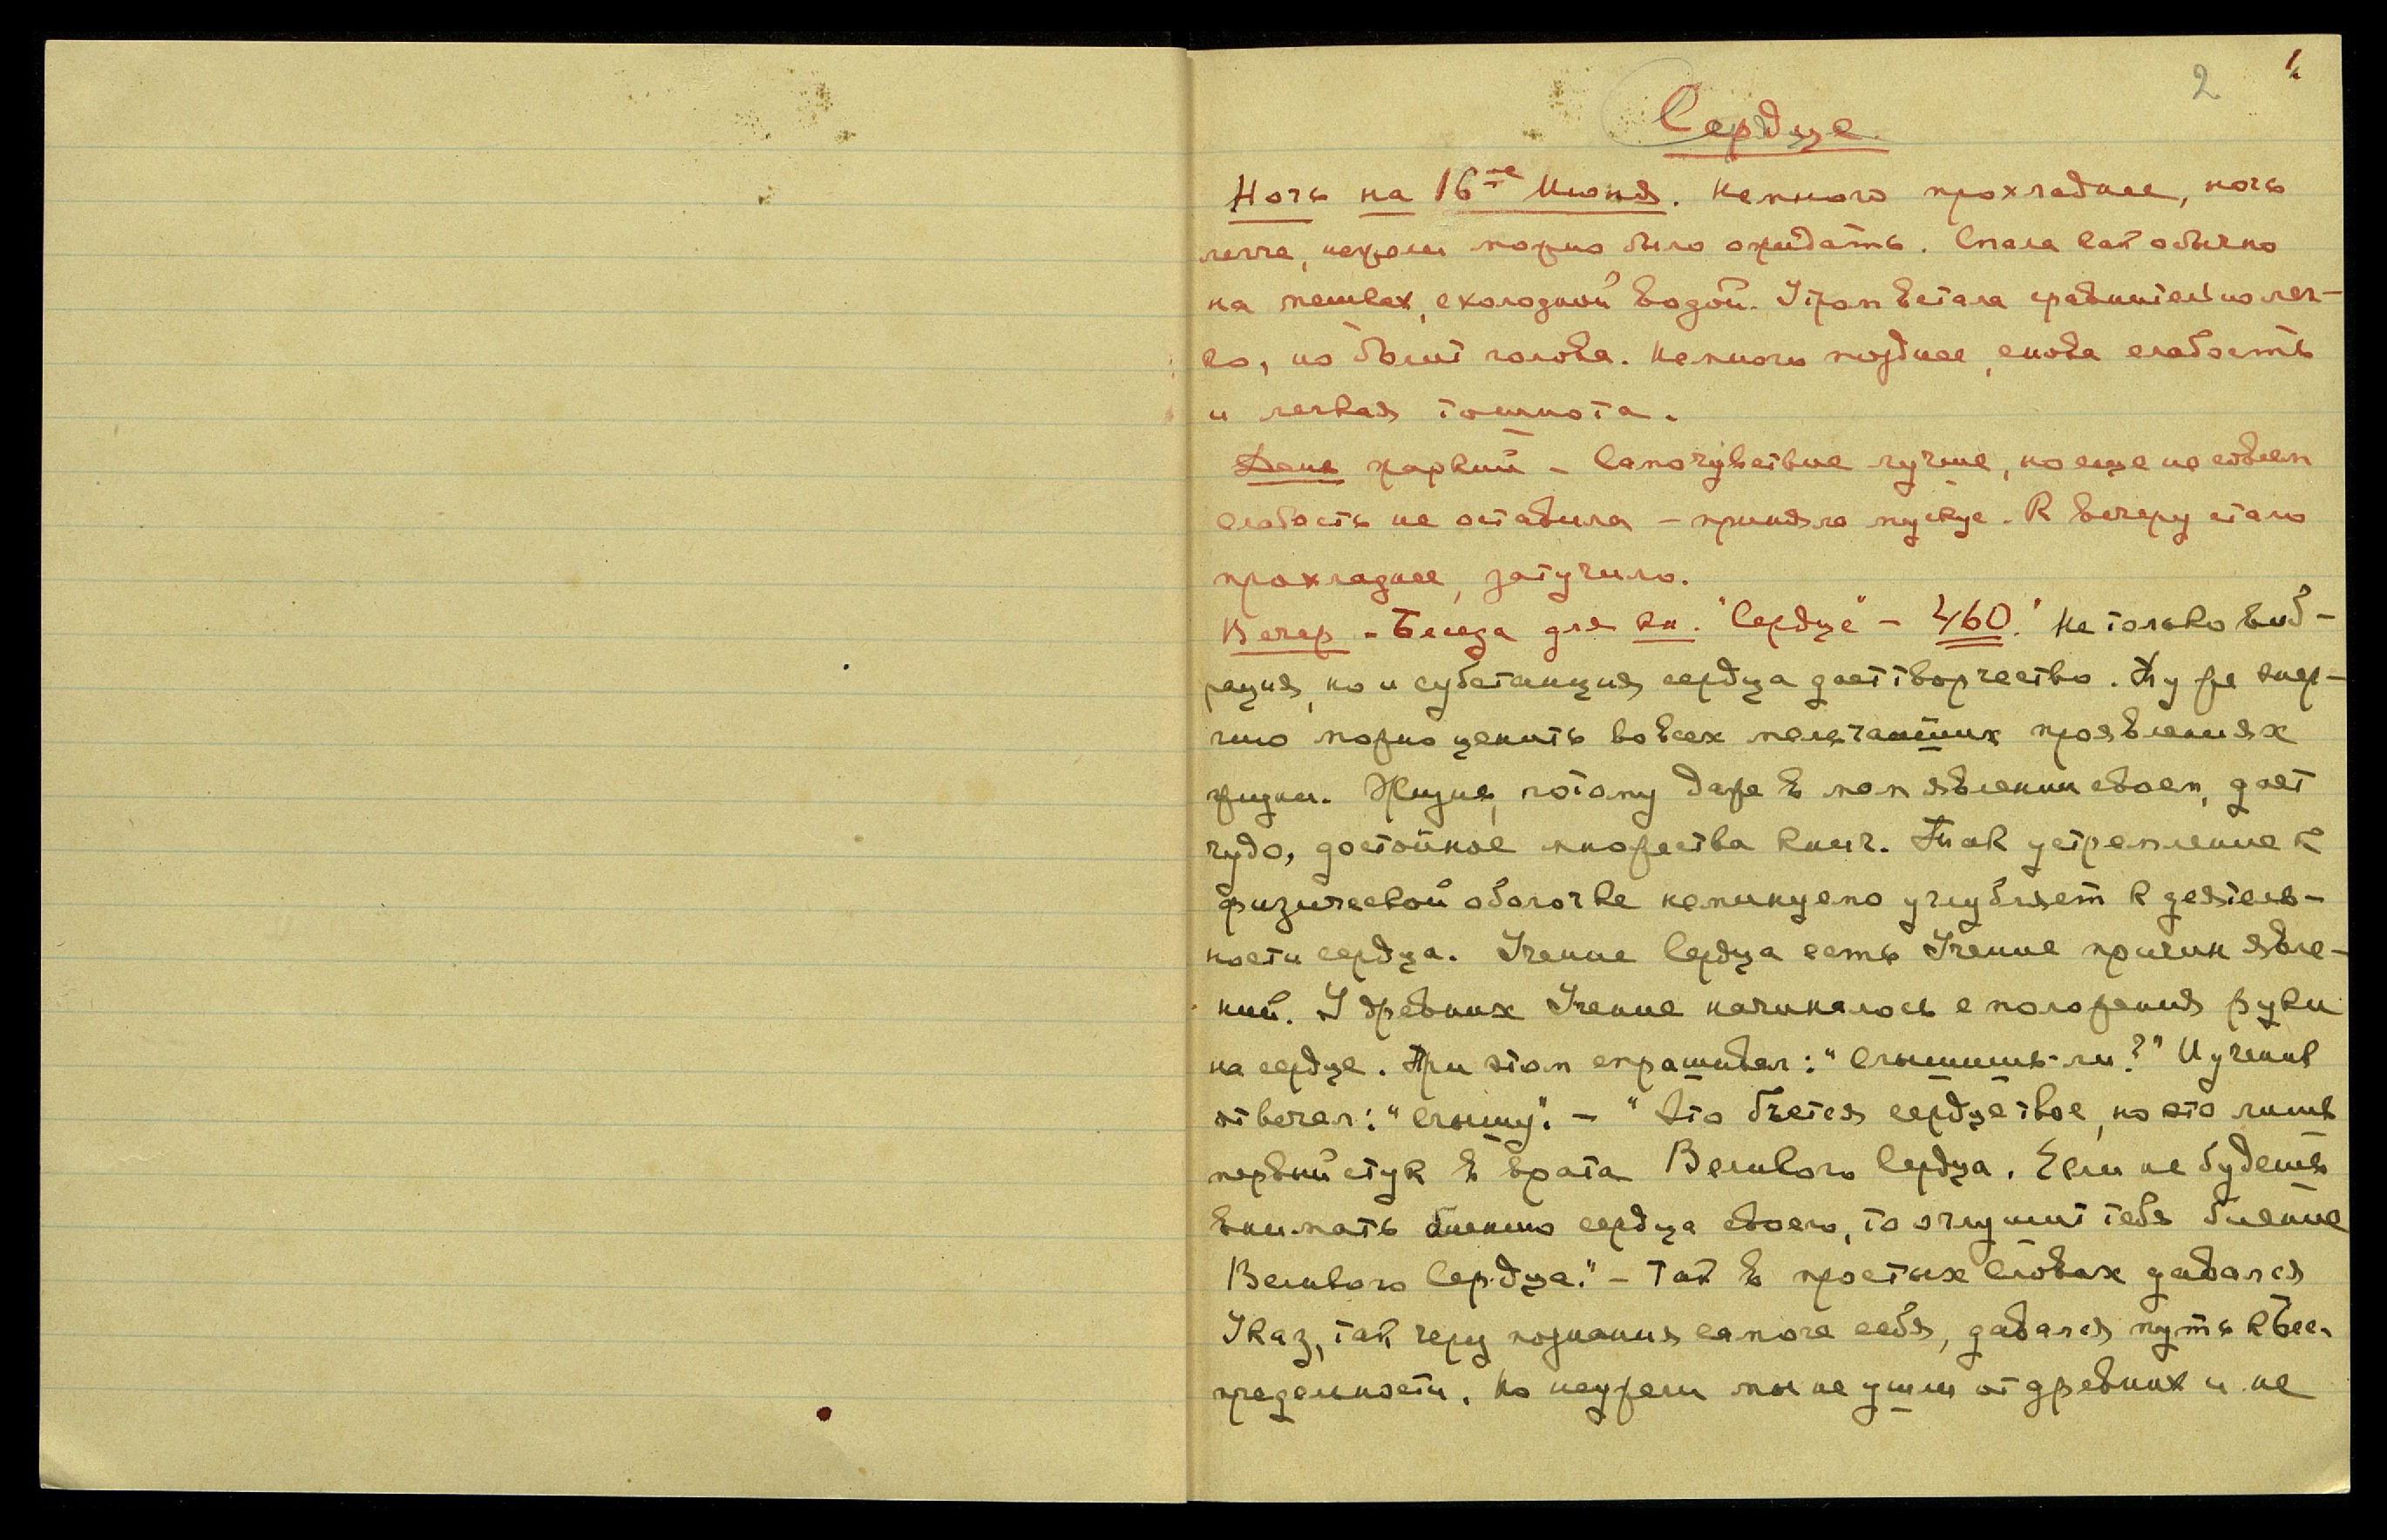 2 1
Сердце
Ночь на 16ое Июня. Немного прохладнее, ночь
легче, нежели можно было ожидать. Спала как обычно
на мешках, с холодной водой. Утром встала сравнительно лег-
ко, но болит голова. Немного позднее, снова слабость
и легкая тошнота.
День жаркий – Самочувствие лучше, но еще не совсем
слабость не оставила – приняла мускус. К вечеру стало
прохладнее, затучило.
Вечер – Беседа для кн. "Сердце" – 460. "Не только виб-
рация, но и субстанция сердца дает творчество. Ту же энер-
гию можно ценить во всех мельчайших проявлениях
жизни. Жизнь, потому даже в мал явлении своем, дает
чудо, достойное множества книг. Так устремление к
физической оболочке неминуемо углубляет к деятель-
ности сердца. Учение Сердца есть Учение причин явле-
ний. У древних Учение начиналось с положения руки
на сердце. При этом спрашивал: "слышишь-ли?" И ученик
отвечал: "слышу". – "Это бьется сердце твое, но это лишь
первый стук в врата Великого Сердца. Если не будешь
внимать биению сердца своего, то оглушит тебя биение
Великого Сердца." – Так в простых словах давался
Указ, так через познания самого себя, давался путь к Бес-
предельности. Но неужели мы не ушли от древних и не